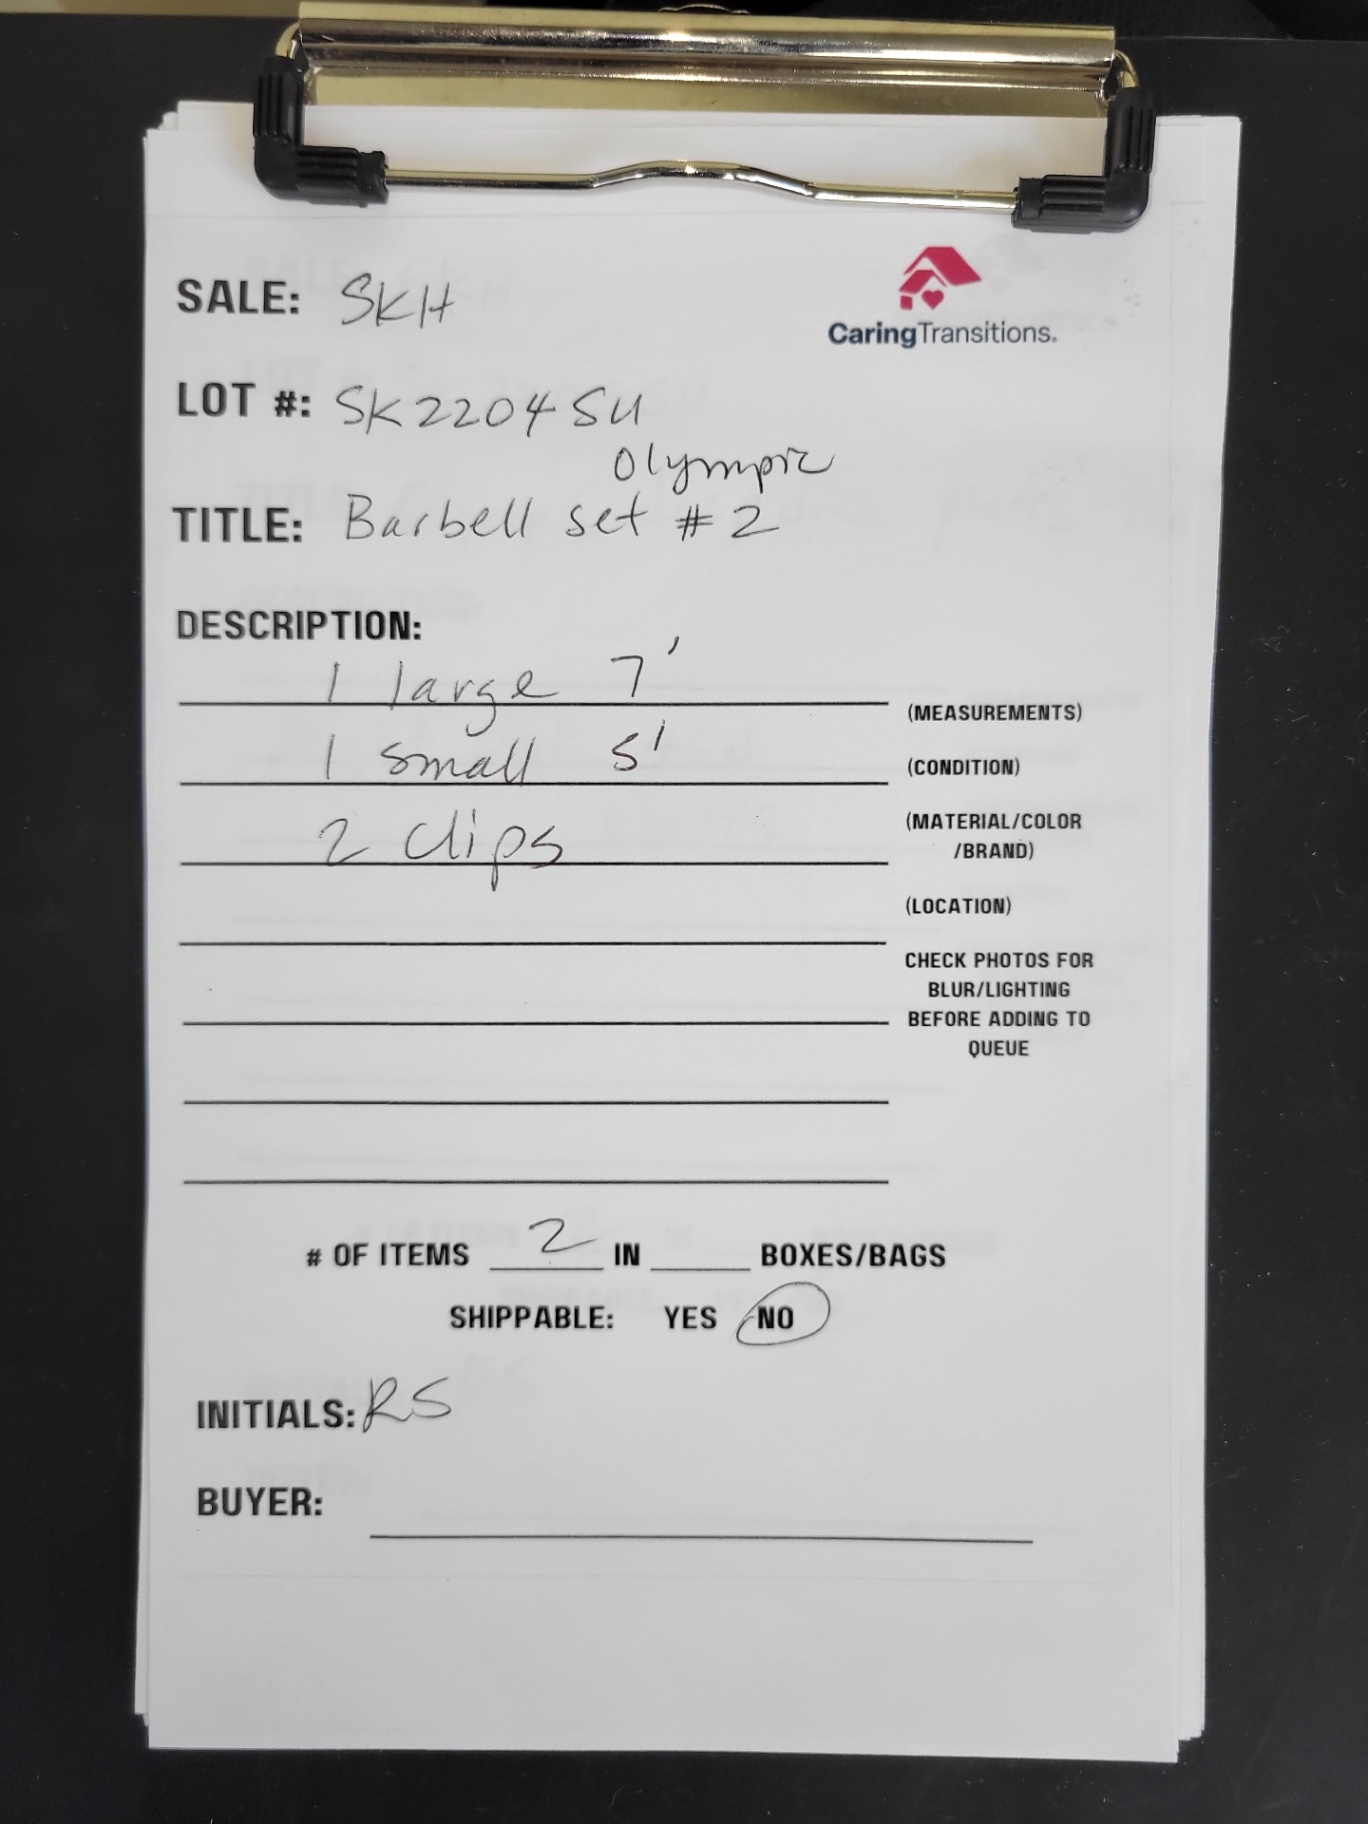 SALE: SKH
CaringTransitions.
LOT #: SK2204SU
Olympic
TITLE: Barbell set #2
DESCRIPTION:
1 large 7'
(MEASUREMENTS)
1 small 5'
(CONDITION)
2 clips
(MATERIAL/COLOR
/BRAND)
(LOCATION)
CHECK PHOTOS FOR
BLUR/LIGHTING
BEFORE ADDING TO
QUEUE
# OF ITEMS 2 IN BOXES/BAGS
SHIPPABLE: YES NO
INITIALS: RS
BUYER: